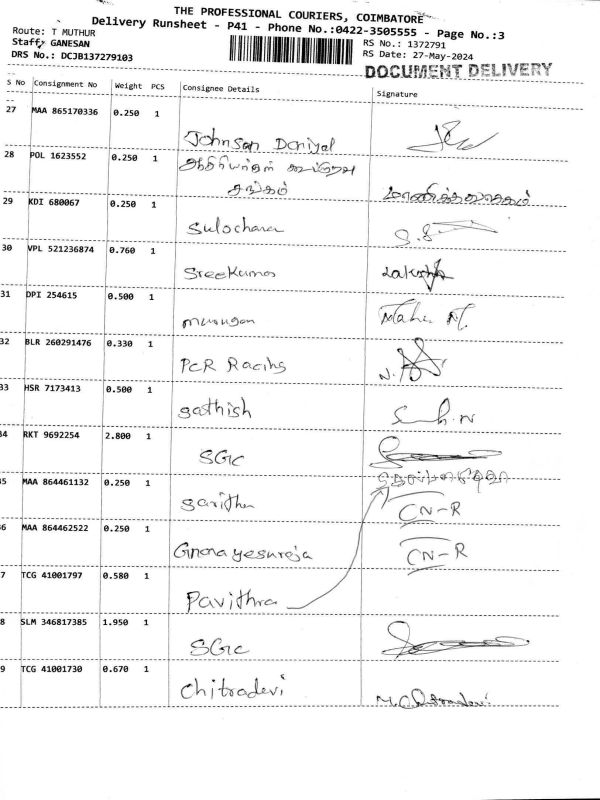 THE PROFESSIONAL COURIERS, COIMBATORE
Delivery Runsheet - P41 - Phone No.:0422-3505555 - Page No.:3
Route: T MUTHUR
Staff: GANESAN
RS No.: 1372791
DRS No.: DCJB137279103
RS Date: 27-May-2024
DOCUMENT DELIVERY
S No Consignment No Weight PCS Consignee Details Signature
27 MAA 865170336 0.250 1
Johnsan Doniyal
28 POL 1623552 0.250 1
சங்கம்
29 KDI 680067 0.250 1
Sulochana S.S
30 VPL 521236874 0.760 1
Sreekumar
31 DPI 254615 0.500 1
murugan
32 BLR 260291476 0.330 1
PCR Racing
33 HSR 7173413 0.500 1
Sathish
34 RKT 9692254 2.800 1
SGC
5 MAA 864461132 0.250 1
Saritha CN-R
6 MAA 864462522 0.250 1
CN-R
7 TCG 41001797 0.580 1
Pavithra
8 SLM 346817385 1.950 1
SGC
9 TCG 41001730 0.670 1
Chitradevi M.Chitradevi